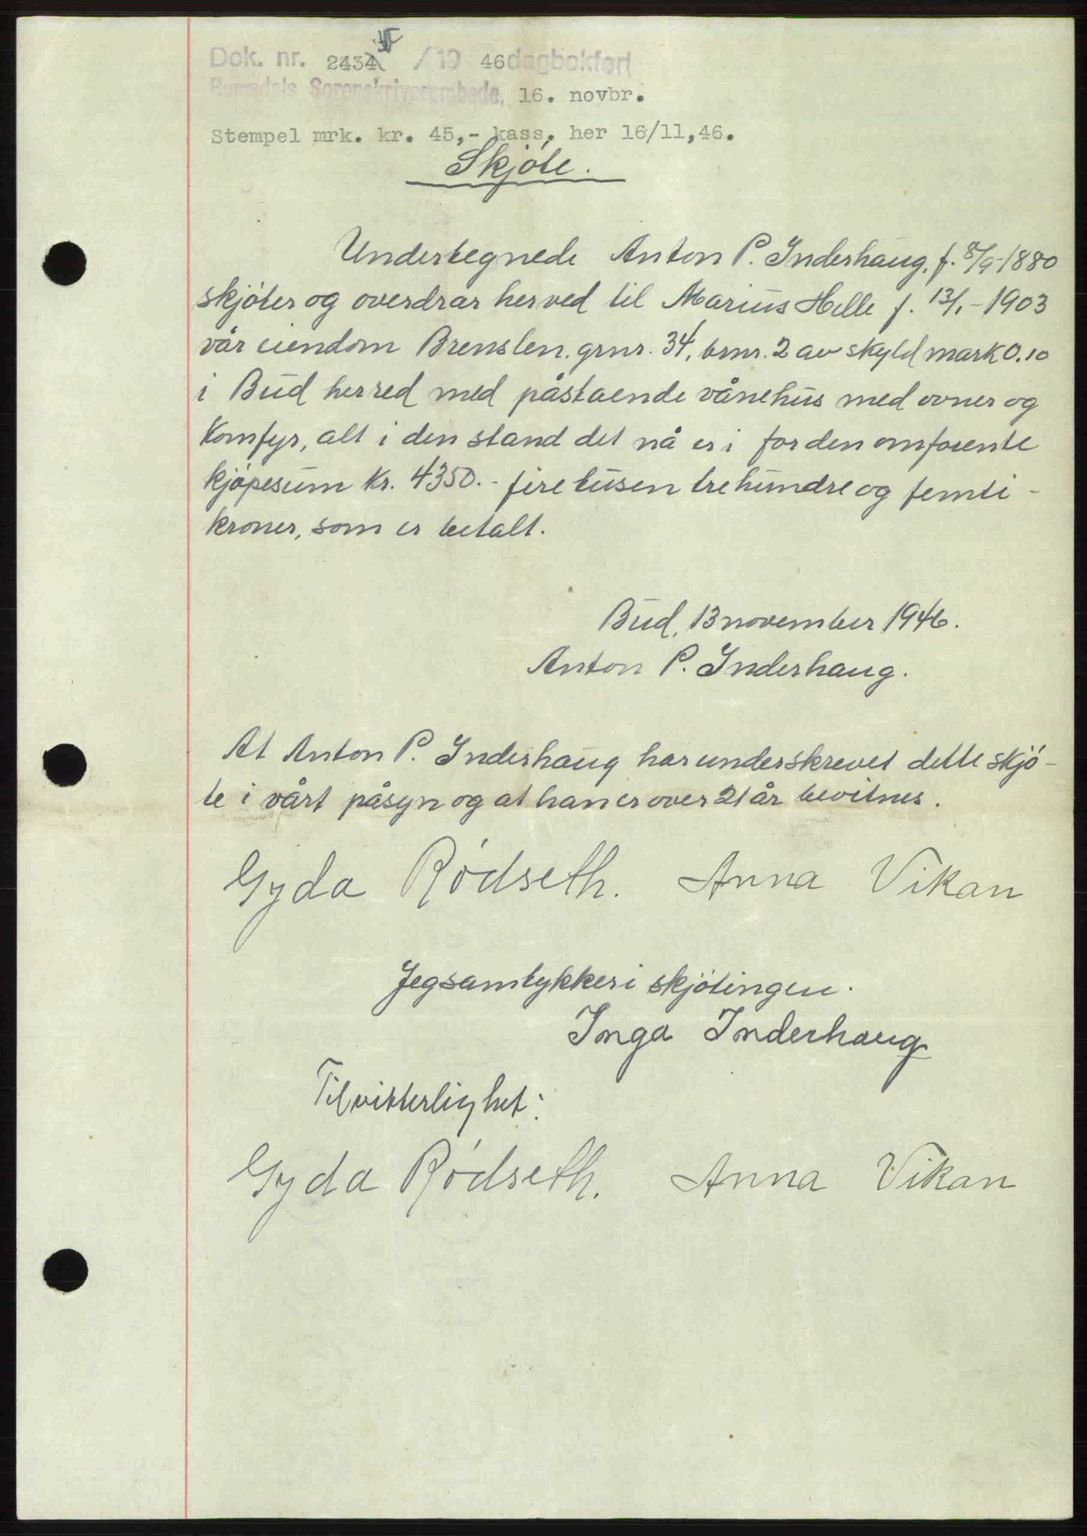 Dok. nr. 2434 /19 46 dagbokført
Romsdals Sorenskriverembede, 16. novbr.
Stempel mrk. kr. 45,- kass. her 16/11,46.
Skjøte.
Undertegnede Anton P. Inderhaug, f. 8/9-1880
skjøter og overdrar herved til Marius Helle f. 13/1.-1903
vår eiendom Brenslen. grnr. 34, brnr. 2 av skyld mark 0.10
i Bud herred med påstående vånehus med ovner og
komfyr, alt i den stand det nå er i for den omforente
kjøpesum kr. 4350.- fire tusen tre hundre og femti -
kroner, som er betalt.
Bud, 13 november 1946.
Anton P. Inderhaug.
At Anton P. Inderhaug har underskrevet dette skjø-
te i vårt påsyn og at han er over 21 år bevitnes.
Gyda Rødseth. Anna Vikan
Jeg samtykker i skjøtingen.
Inga Inderhaug
Til vitterlighet:
Gyda Rødseth. Anna Vikan